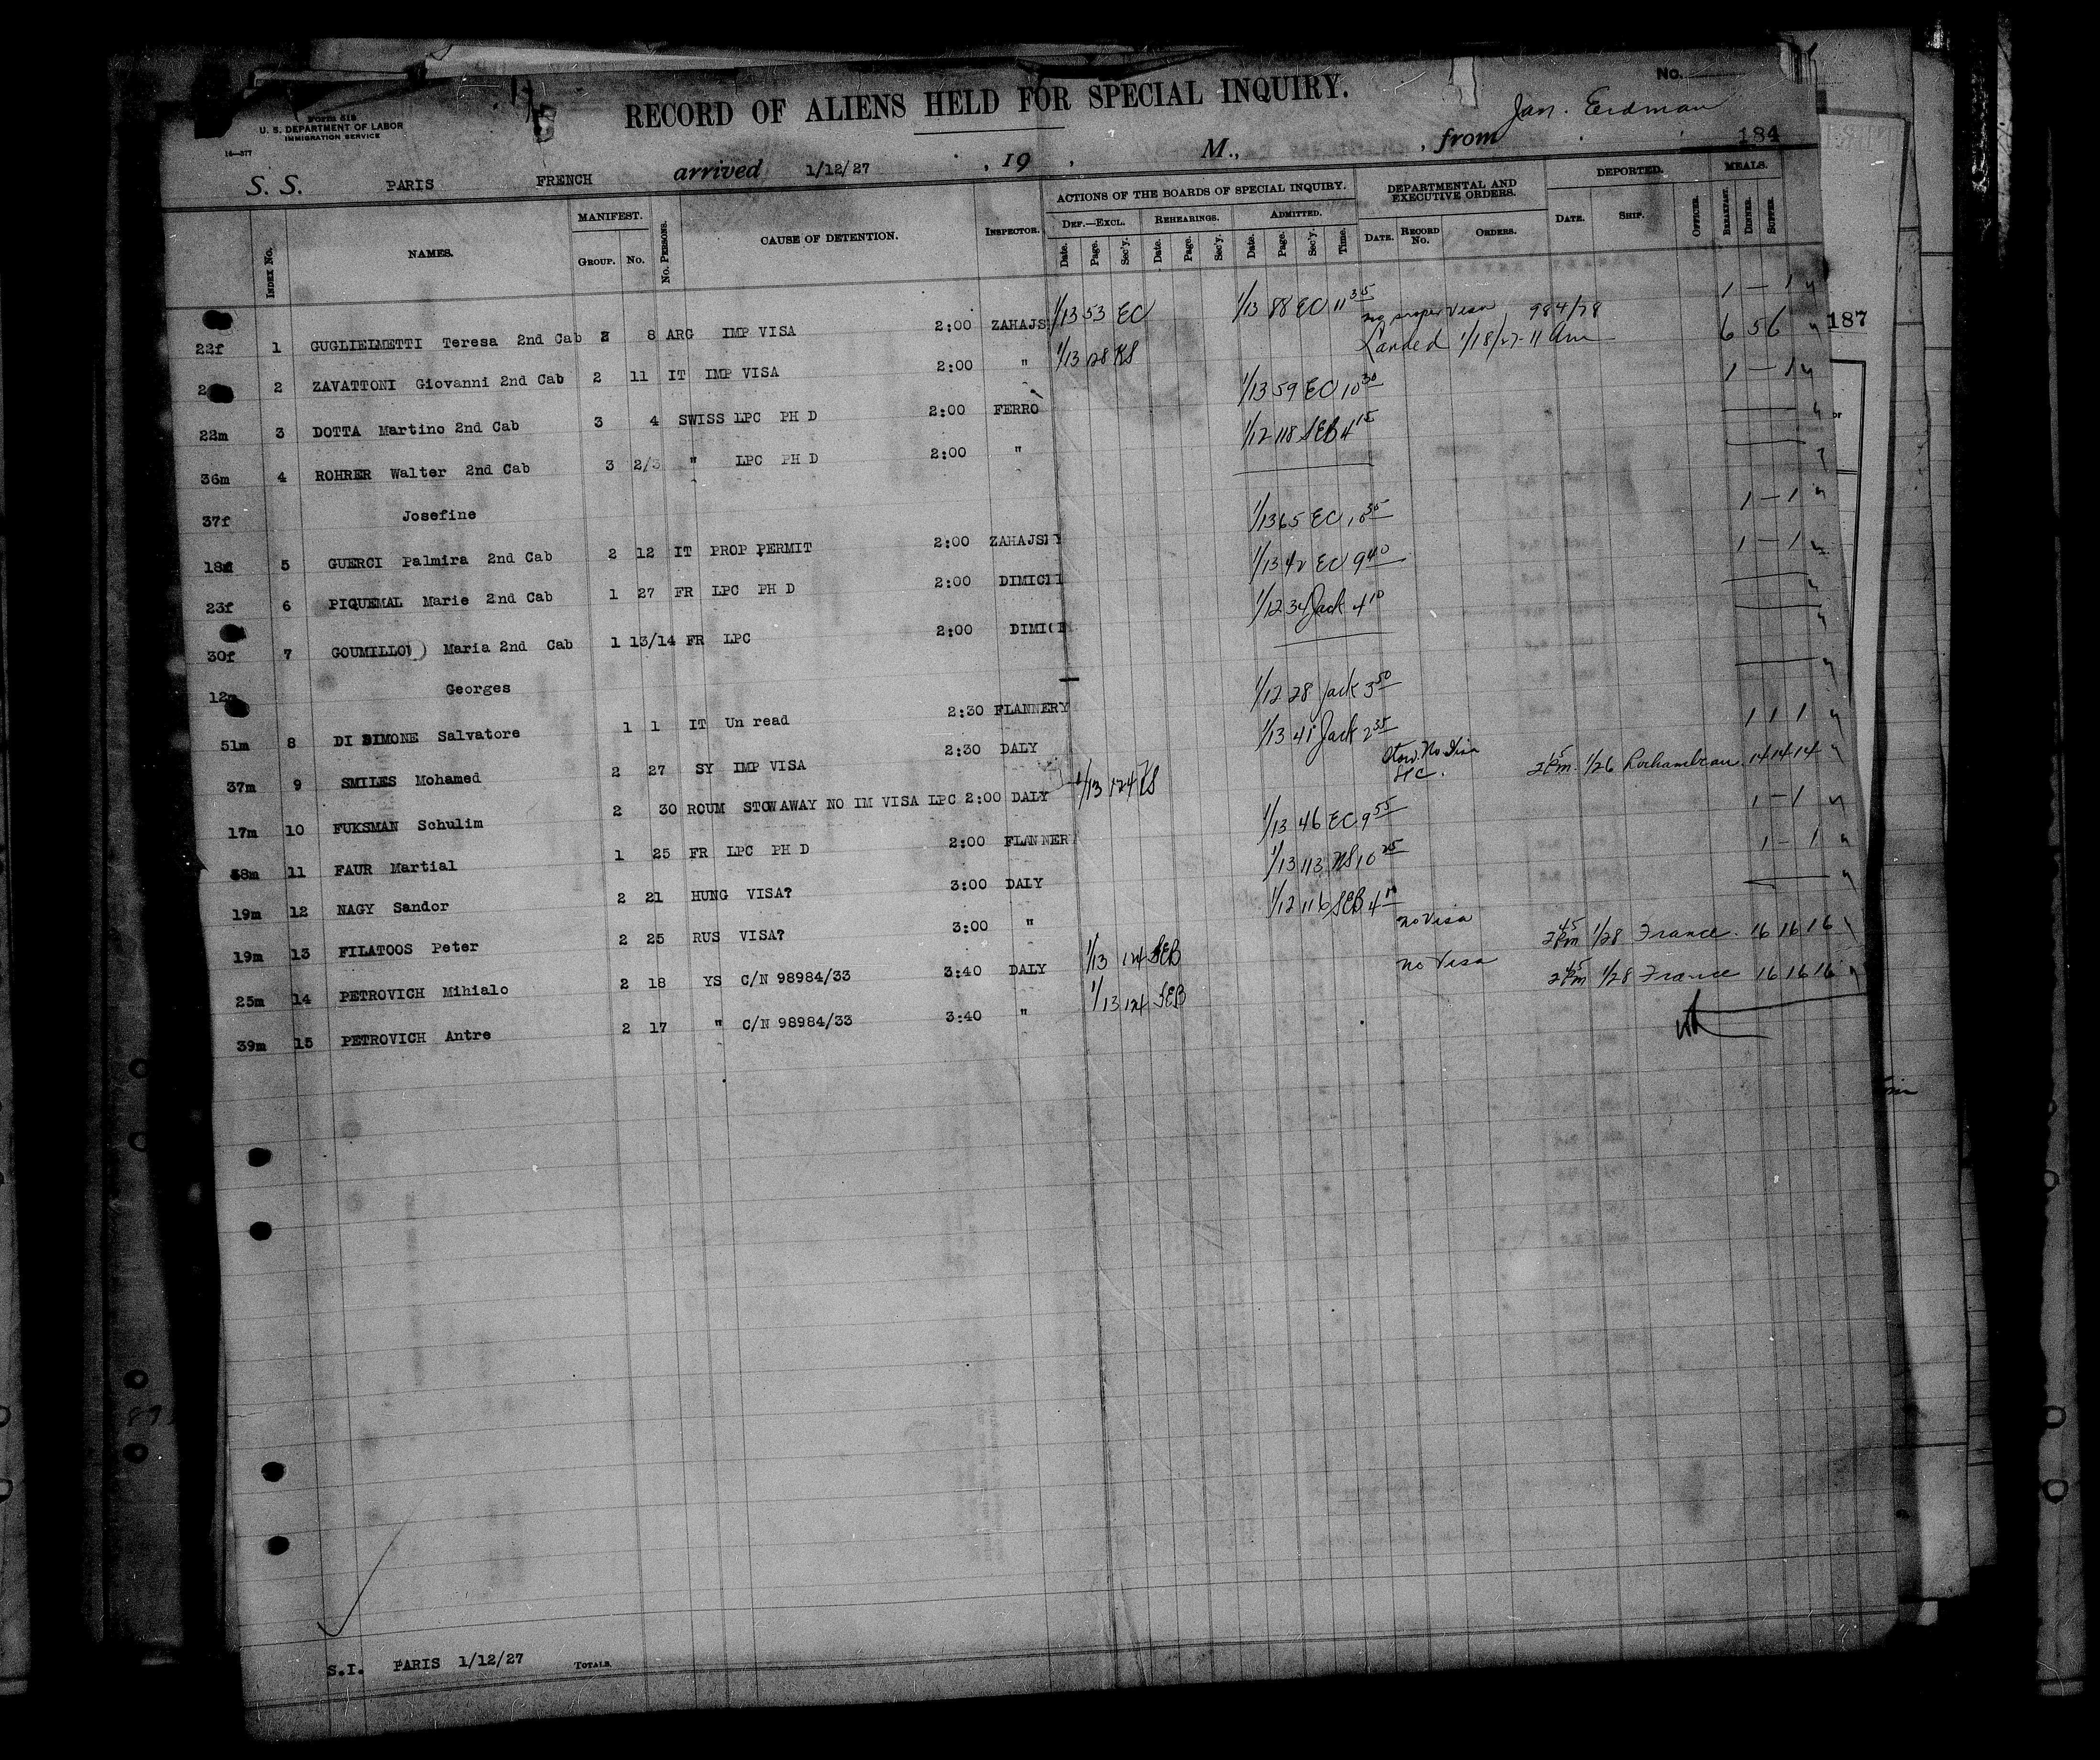 No.
Form 518
U. S. DEPARTMENT OF LABOR
IMMIGRATION SERVICE
16—377
RECORD OF ALIENS HELD FOR SPECIAL INQUIRY.
Jan. Erdman
184
S. S. PARIS FRENCH arrived 1/12/27 , 19 , M., , from
INDEX No. NAMES. MANIFEST. GROUP. No. No. PERSONS. CAUSE OF DETENTION. INSPECTOR. ACTIONS OF THE BOARDS OF SPECIAL INQUIRY. DEF.—EXCL. REHEARINGS. ADMITTED. DEPARTMENTAL AND EXECUTIVE ORDERS. DEPORTED. MEALS.
Date. Page. Sec'y. Date. Page. Sec'y. Date. Page. Sec'y. Time. DATE. RECORD No. ORDERS. DATE. SHIP. OFFICER. BREAKFAST. DINNER. SUPPER.
22f 1 GUGLIELMETTI Teresa 2nd Cab 8 ARG IMP VISA 2:00 ZAHAJS 1/13 53 EC 1/13 88 EC 11 35 1 — 1
no proper Visa 984/78
2 ZAVATTONI Giovanni 2nd Cab 2 11 IT IMP VISA 2:00 " 1/13 28 KS Landed 1/18/27 11 am 6 5 6
22m 3 DOTTA Martino 2nd Cab 3 4 SWISS LPC PH D 2:00 FERRO 1/13 59 EC 10 30 1 — 1
36m 4 ROHRER Walter 2nd Cab 3 2/3 " LPC PH D 2:00 " 1/12 118 SEB 4 15
37f Josefine
18 5 GUERCI Palmira 2nd Cab 2 12 IT PROP PERMIT 2:00 ZAHAJS Y 1/13 65 EC 1 — 1
23f 6 PIQUEMAL Marie 2nd Cab 1 27 FR LPC PH D 2:00 DIMIC 1/13 42 EC 9 40 1 — 1
30f 7 GOUMILLO Maria 2nd Cab 1 13/14 FR LPC 2:00 DIMI 1/12 34 Jack 4 10
12 Georges
51m 8 DI SIMONE Salvatore 1 1 IT Un read 2:30 FLANNERY 1/12 28 Jack 3 50
37m 9 SMILES Mohamed 2 27 SY IMP VISA 2:30 DALY 1/13 41 Jack 2 35 1 1 1
17m 10 FUKSMAN Schulim 2 30 ROUM STOWAWAY NO IM VISA LPC 2:00 DALY 1/13 124 KS Stow. No Visa LPC. 1/26 Rochambeau 14 14 14
38m 11 FAUR Martial 1 25 FR LPC PH D 2:00 FLANNER 1/13 46 EC 9 55 1 — 1
19m 12 NAGY Sandor 2 21 HUNG VISA? 3:00 DALY 1/13 113 10 25 1 — 1
19m 13 FILATOOS Peter 2 25 RUS VISA? 3:00 " 1/12 116 SEB 4
25m 14 PETROVICH Mihialo 2 18 YS C/N 98984/33 3:40 DALY 1/13 124 SEB no Visa 2 45 Pm 1/28 France 16 16 16
39m 15 PETROVICH Antre 2 17 " C/N 98984/33 3:40 " 1/13 124 SEB no Visa 2 45 Pm 1/28 France 16 16 16
187
S.I. PARIS 1/12/27 TOTALS